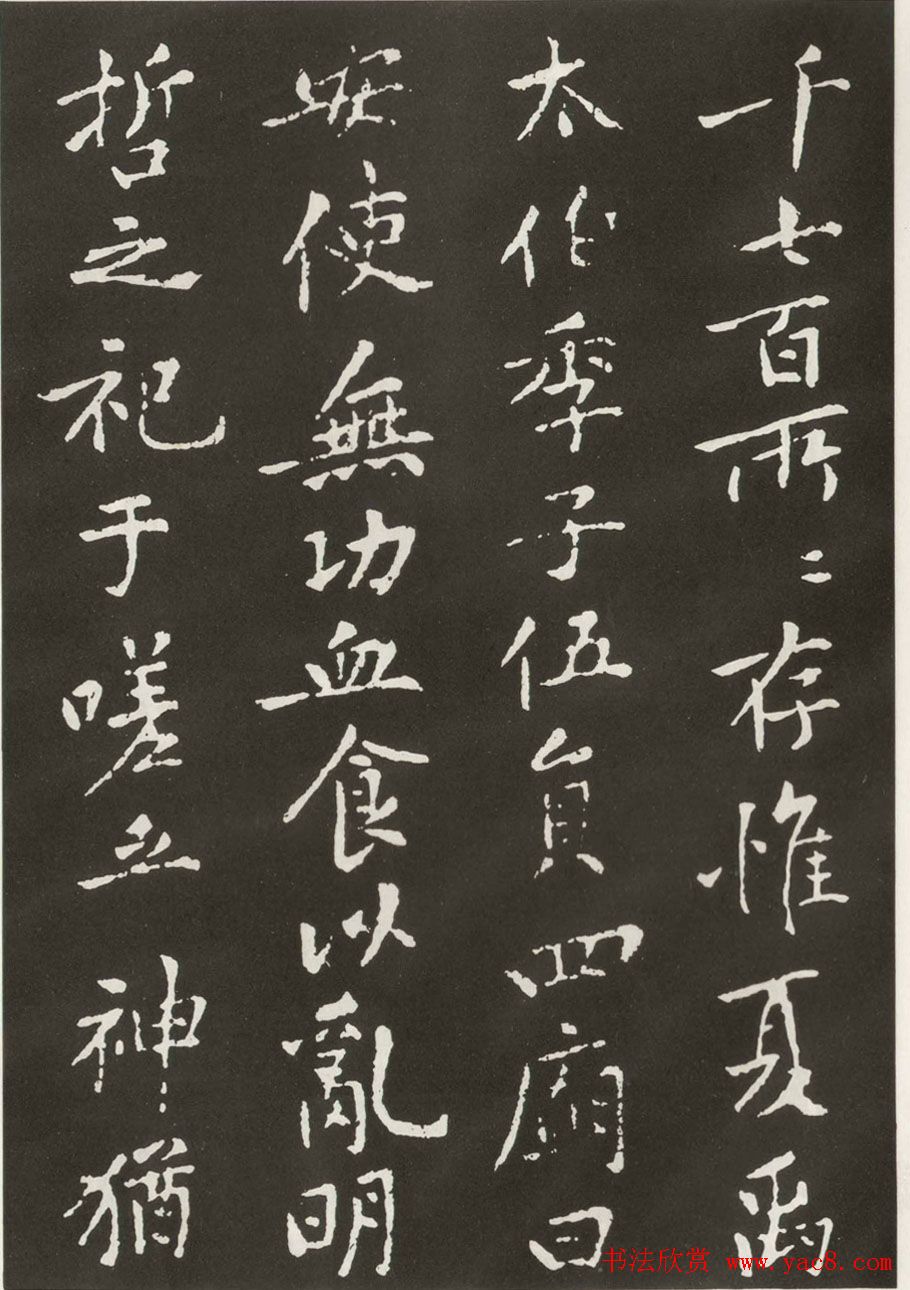 千七百所〻存惟夏禹
太伯季子伍員四廟曰
安使無功血食以亂明
哲之祀于嗟乎神猶
书法欣赏 www.yac8.com